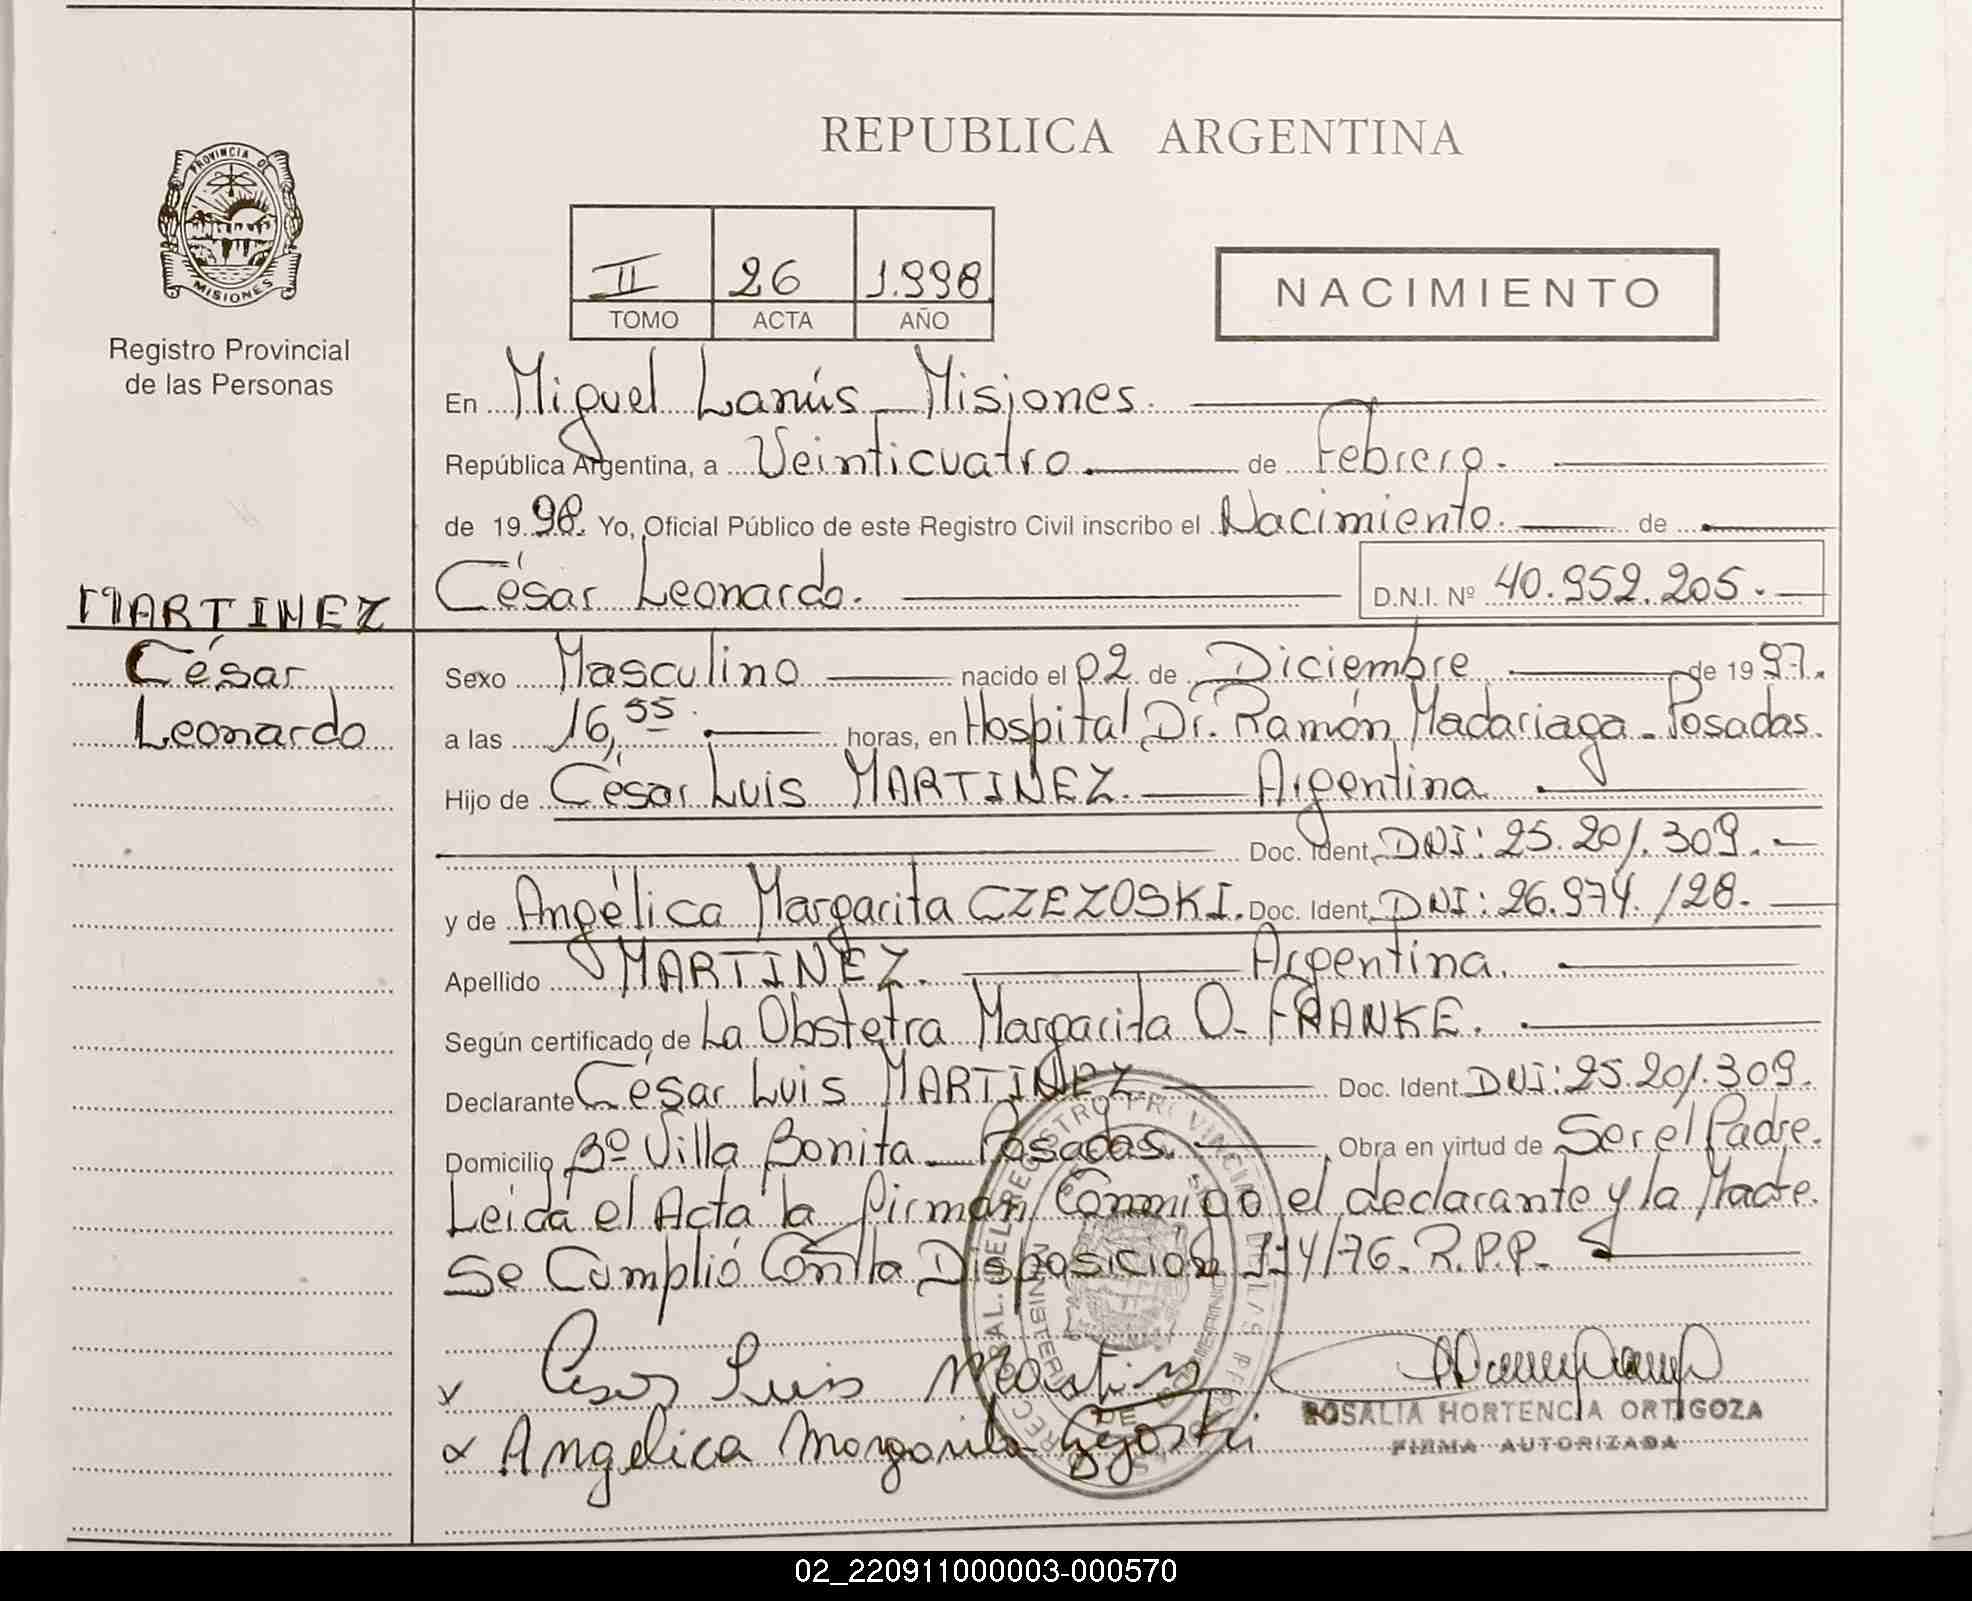 REPUBLICA ARGENTINA
PROVINCIA DE
MISIONES
Registro Provincial
de las Personas
II 26 1.998
TOMO ACTA AÑO
NACIMIENTO
En Miguel Lanús - Misiones.
República Argentina, a Veinticuatro. de Febrero.
de 19 98. Yo, Oficial Público de este Registro Civil inscribo el Nacimiento. de
César Leonardo. D.N.I. Nº 40.952.205.
MARTINEZ
César
Leonardo
Sexo Masculino nacido el 02 de Diciembre de 19 97.
a las 16,55. horas, en Hospital Dr. Ramón Madariaga - Posadas.
Hijo de César Luis MARTINEZ. Argentina
Doc. Ident. DNI: 25.201.309.
y de Angélica Margarita CZEZOSKI. Doc. Ident. DNI: 26.974.128.
Apellido MARTINEZ. Argentina.
Según certificado de La Obstetra Margarita O. FRANKE.
Declarante César Luis MARTINEZ Doc. Ident. DNI: 25.201.309.
Domicilio Bº Villa Bonita - Posadas. Obra en virtud de Ser el Padre.
Leida el Acta la firman Conmigo el declarante y la Madre.
Se Cumplió Con la Disposición 114/76. R.P.P.
x Cesar Luis Martinez
x Angelica Margarita
ROSALIA HORTENCIA ORTIGOZA
FIRMA AUTORIZADA
02_220911000003-000570